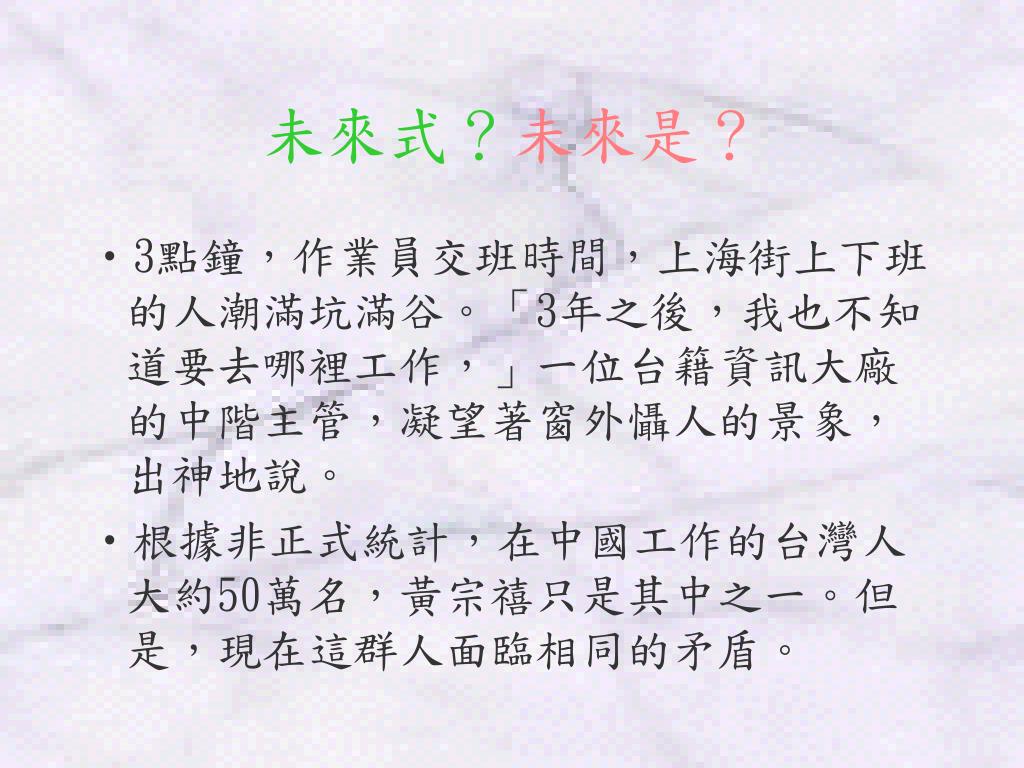 未來式？未來是？
•3點鐘，作業員交班時間，上海街上下班
的人潮滿坑滿谷。「3年之後，我也不知
道要去哪裡工作，」一位台籍資訊大廠
的中階主管，凝望著窗外懾人的景象，
出神地說。
•根據非正式統計，在中國工作的台灣人
大約50萬名，黃宗禧只是其中之一。但
是，現在這群人面臨相同的矛盾。